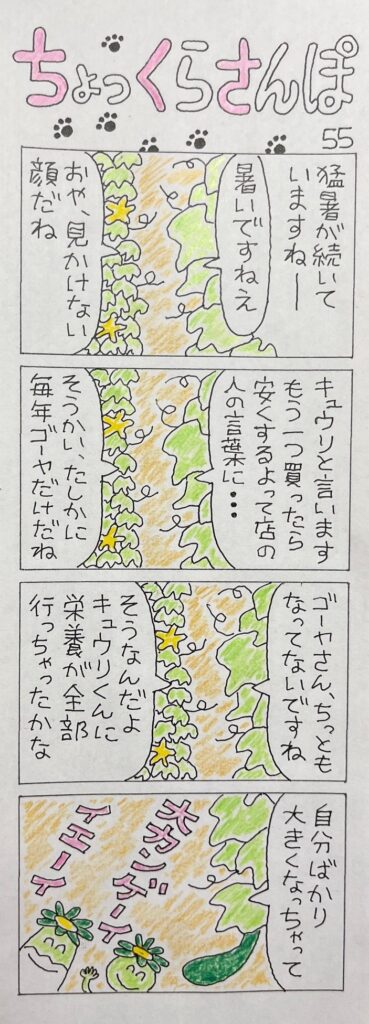 ちょっくらさんぽ
55
猛暑が続いて
いますねー
暑いですねえ
おや、見かけない
顔だね
キュウリと言います
もう一つ買ったら
安くするよって店の
人の言葉に…
そうかい、たしかに
毎年ゴーヤだけだね
ゴーヤさん、ちっとも
なってないですね
そうなんだよ
キュウリくんに
栄養が全部
行っちゃったかな
自分ばかり
大きくなっちゃって
大カンゲーイ
イエーイ